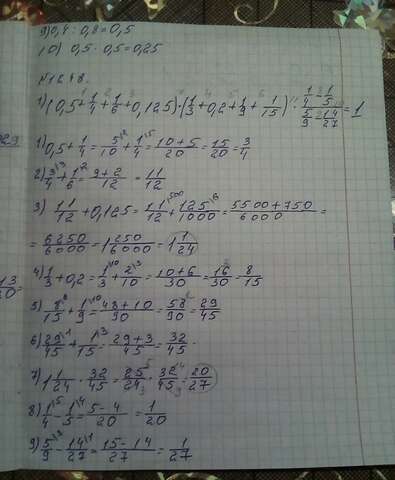 9) 0,4 : 0,8 = 0,5
10) 0,5 · 0,5 = 0,25
N 1648.
1) (0,5 + 1/4 + 1/6 + 0,125) · (1/3 + 0,2 + 1/9 + 1/15) · (1/4 - 1/5)/(5/9 - 14/27) = 1
1) 0,5 + 1/4 = 5/10 + 1/4 = (10 + 5)/20 = 15/20 = 3/4
2) 3/4 + 1/6 = (9 + 2)/12 = 11/12
3) 11/12 + 0,125 = 11/12 + 125/1000 = (5500 + 750)/6000 =
= 6250/6000 = 1 250/6000 = 1 1/24
4) 1/3 + 0,2 = 1/3 + 2/10 = (10 + 6)/30 = 16/30 = 8/15
5) 8/15 + 1/9 = (48 + 10)/90 = 58/90 = 29/45
6) 29/45 + 1/15 = (29 + 3)/45 = 32/45
7) 1 1/24 · 32/45 = 25/24 · 32/45 = 20/27
8) 1/4 - 1/5 = (5 - 4)/20 = 1/20
9) 5/9 - 14/27 = (15 - 14)/27 = 1/27